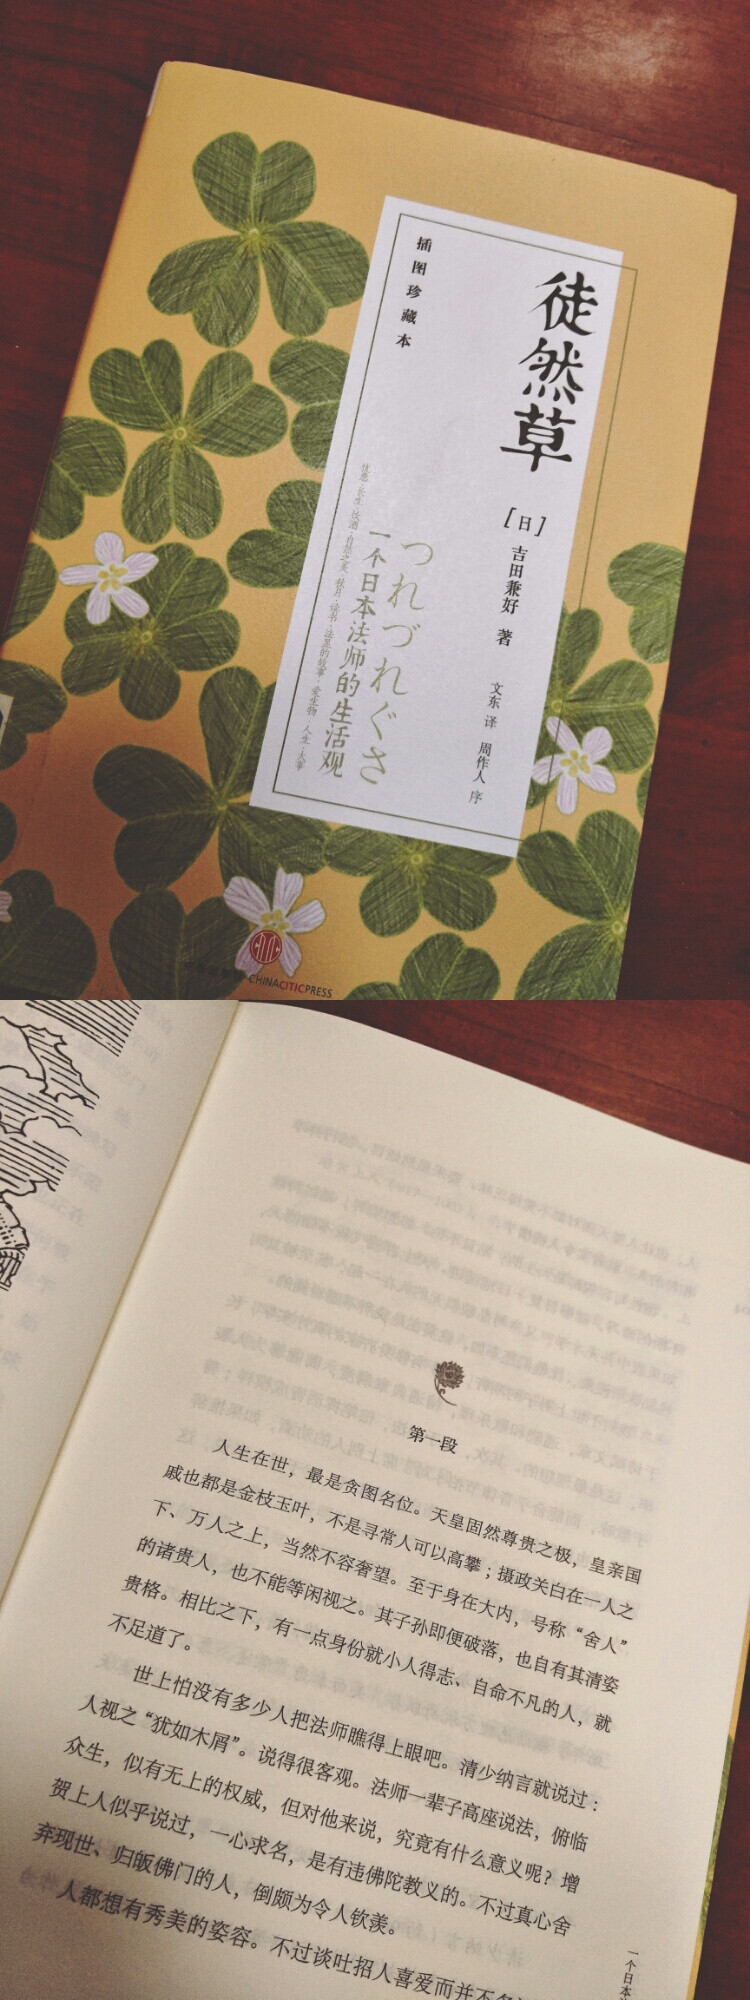 徒然草
[日]吉田兼好 著
文东 译 周作人 序
插图珍藏本
つれづれぐさ
一个日本法师的生活观
CHINACITICPRESS
第一段
人生在世，最是贪图名位。天皇固然尊贵之极，皇亲国
戚也都是金枝玉叶，不是寻常人可以高攀；摄政关白在一人之
下、万人之上，当然不容奢望。至于身在大内，号称“舍人”
的诸贵人，也不能等闲视之。其子孙即便破落，也自有其清姿
贵格。相比之下，有一点身份就小人得志、自命不凡的人，就
不足道了。
世上怕没有多少人把法师瞧得上眼吧。清少纳言就说过：
人视之“犹如木屑”。说得很客观。法师一辈子高座说法，俯临
众生，似有无上的权威，但对他来说，究竟有什么意义呢？增
贺上人似乎说过，一心求名，是有违佛陀教义的。不过真心舍
弃现世、归皈佛门的人，倒颇为令人钦羡。
人都想有秀美的姿容。不过谈吐招人喜爱而并不
一个日本